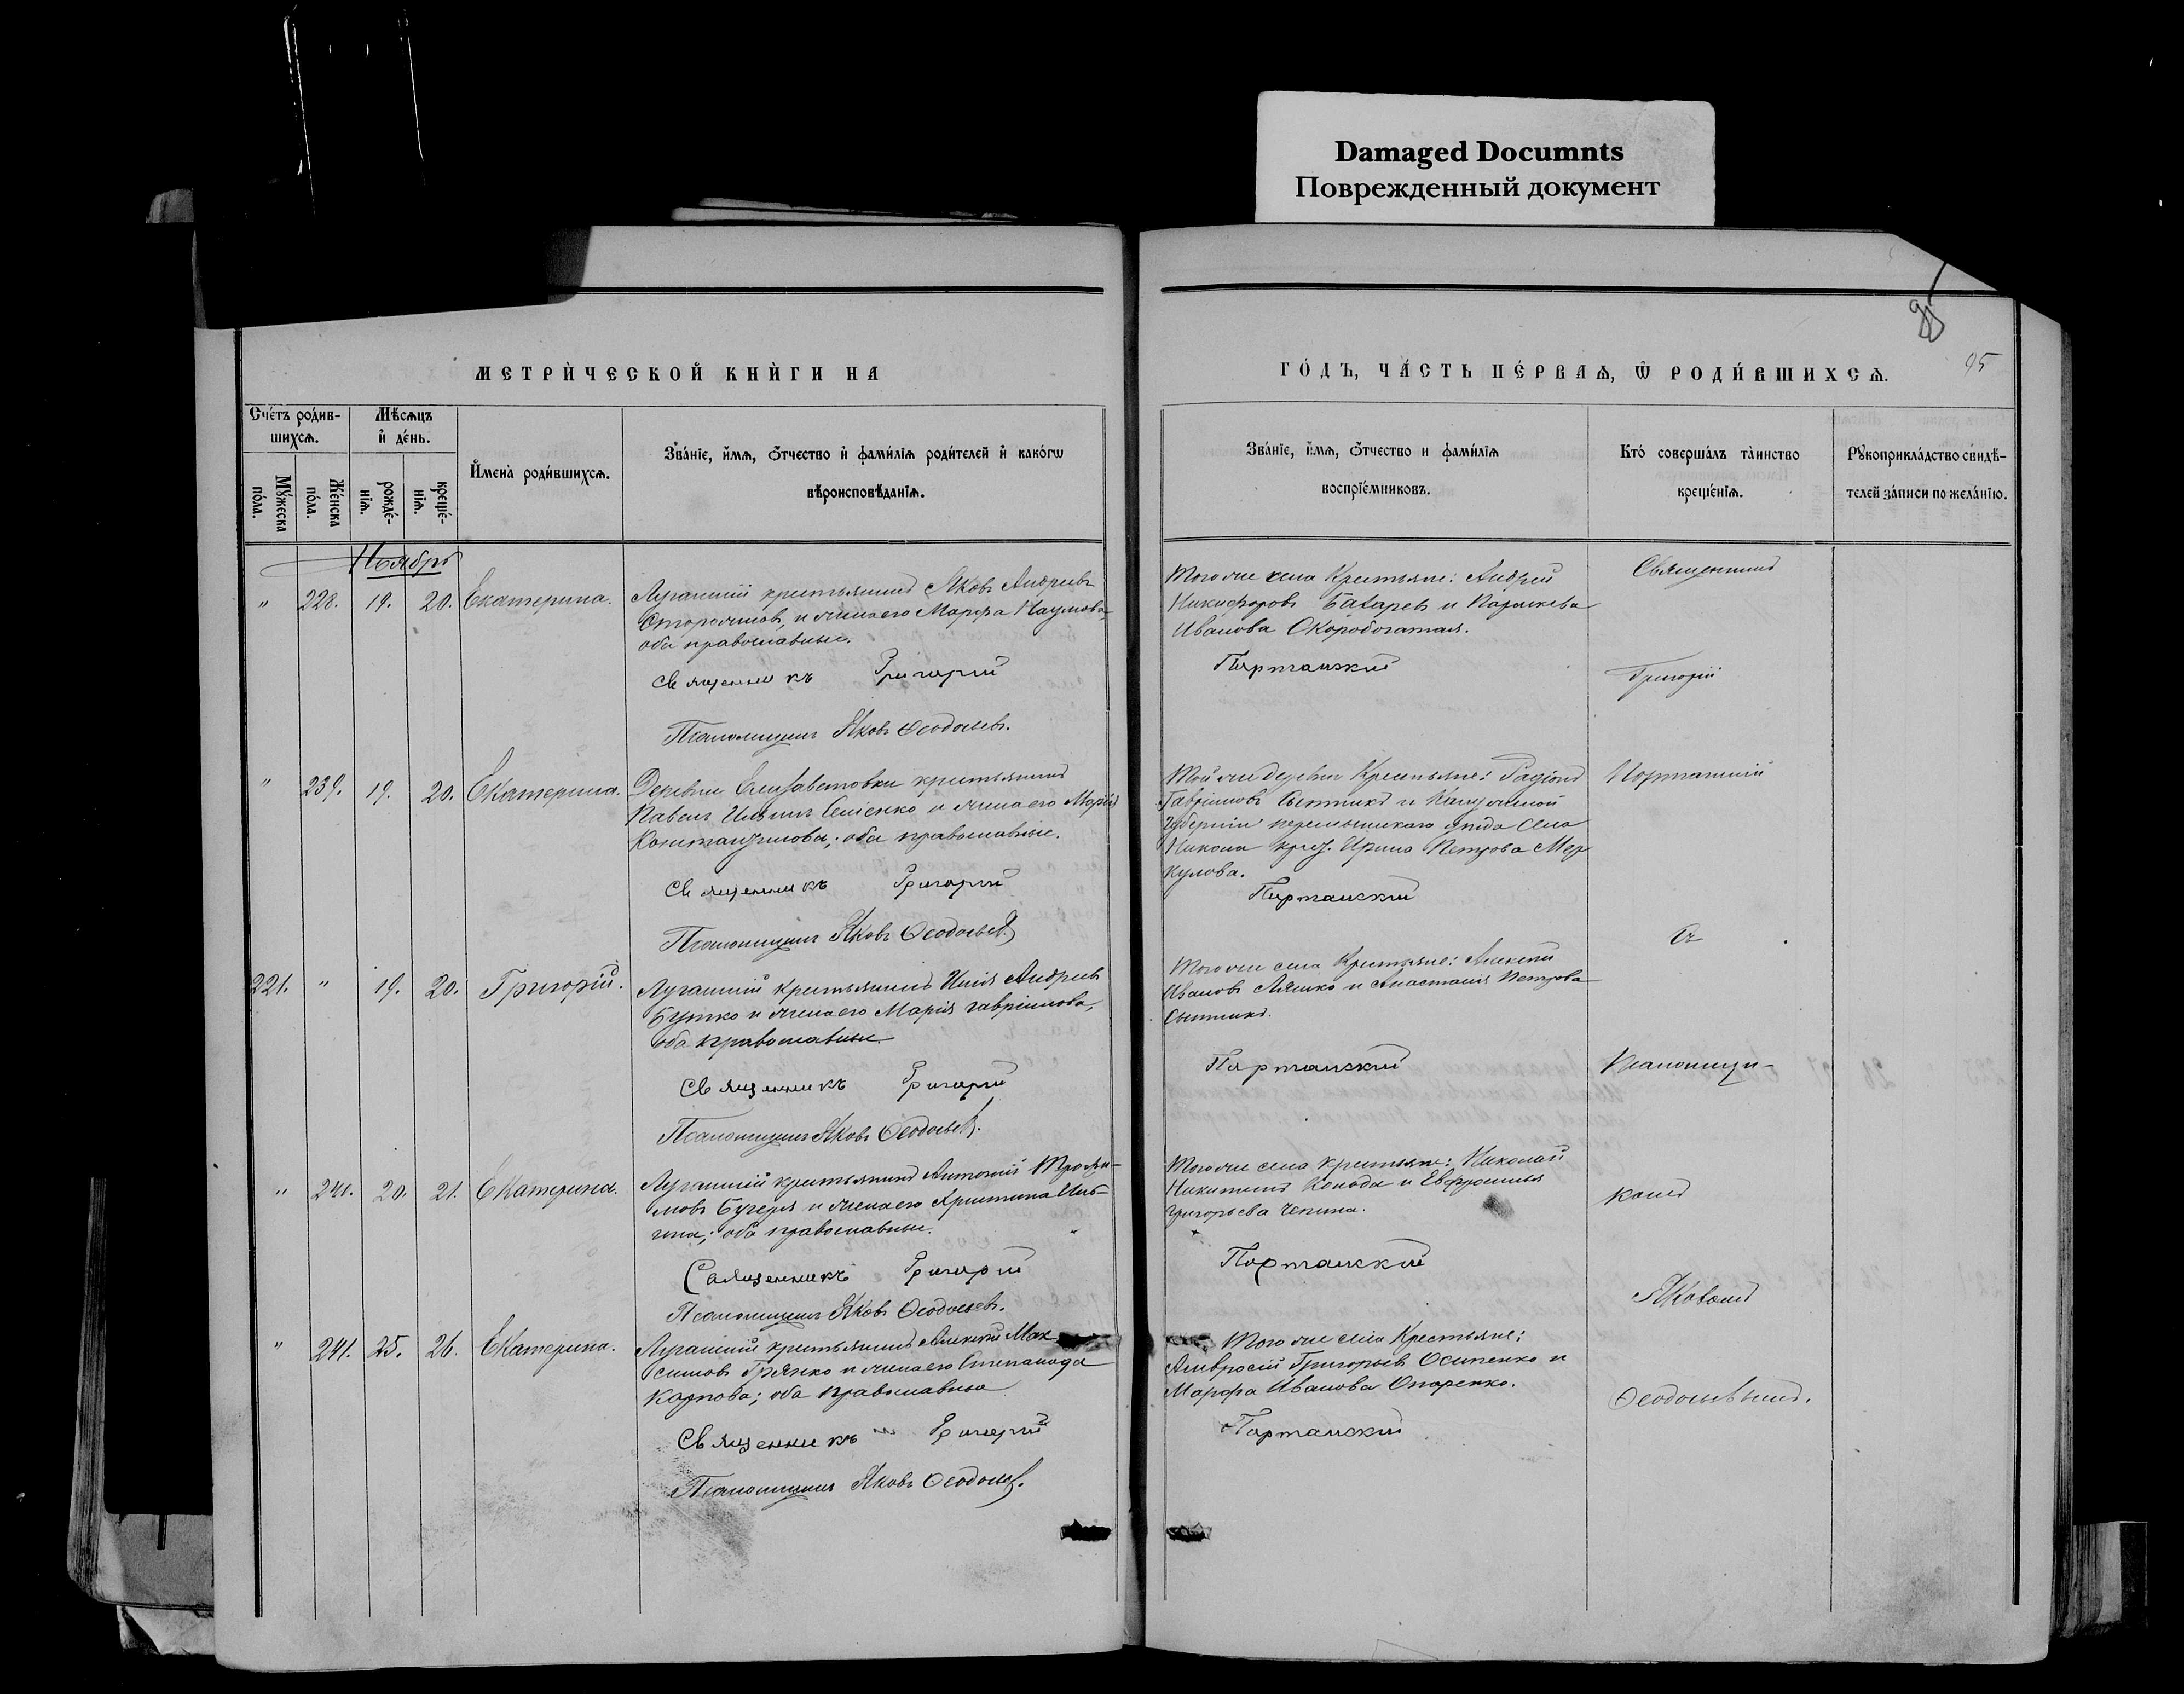 Damaged Documnts
Поврежденный документ
95
МЕТРИ́ЧЕСКОЙ КНИ́ГИ НА
ГО́ДЪ, ЧА́СТЬ ПЕ́РВАѦ, Ѿ РОДИ́ВШИХСѦ.
Сче́тъ роди́в-
шихсѧ.
Мѣ́сѧцъ
и҆ де́нь.
Му́жеска
по́ла.
Же́нска
по́ла.
рожде́-
нїѧ.
креще́-
нїѧ.
И҆мена̀ роди́вшихсѧ.
Зва́нїе, и҆́мѧ, ѻ҆́тчество и҆ фами́лїѧ роди́телей и҆ како́гѡ
вѣроисповѣ́данїѧ.
Зва́нїе, и҆́мѧ, ѻ҆́тчество и фами́лїѧ
воспрїе́мниковъ.
Кто̀ соверша́лъ та́инство
креще́нїѧ.
Рꙋкоприкла́дство свидѣ́-
телей за́писи по жела́нїю.
Ноябрь
" 228. 19. 20. Екатерина.
Луганскій крестьянинъ Яковъ Андреевъ
Сторожиловъ, и жена его Марфа Наумова,
оба православные.
Священникъ Григорій
Псаломщикъ Яковъ Ѳеодосьевъ.
Того же села Крестьяне: Андрей
Никифоровъ и Параскева
Иванова Скоробогатая.
Портанский
" 239. 19. 20. Екатерина.
Деревни Елисаветовки крестьянинъ
Павелъ Ильинъ и жена его Марія
Константинова; оба православные.
Священникъ Григорій
Псаломщикъ Яковъ Ѳеодосьевъ
Той же деревни Крестьяне:
Гавріиловъ Сытникъ и Калужской
губерніи перемышльскаго уѣзда села
Никола крест. Ирина Петрова Мер
кулова.
Портанский
221. " 19. 20. Григорій.
Луганскій крестьянинъ Илія Андреевъ
Бутко и жена его Марія Гавріилова,
оба православные
Священникъ Григорій
Псаломщикъ Яковъ Ѳеодосьевъ.
Того же села Крестьяне: Алексѣй
Ивановъ Ляшко и Анастасія Петрова
Сытникъ.
Портанский
" 240. 20. 21. Екатерина.
Луганскій крестьянинъ Антоній Трофи-
мовъ и жена его Христина Иль-
ина; оба православные.
Священникъ Григорій
Псаломщикъ Яковъ Ѳеодосьевъ.
Того же села крестьяне: Николай
Никитинъ и Евфросинья
Григорьева Чепина.
Портанский
" 241. 25. 26. Екатерина.
Луганскій крестьянинъ Алексѣй Мак
симовъ и жена его Степанида
Карпова; оба православные
Священникъ Григорій
Псаломщикъ Яковъ Ѳеодосьевъ.
Того же села Крестьяне:
Амвросій Григорьевъ Осипенко и
Марфа Иванова Опаренко.
Портанский
Священникъ
Григорій
Портанскій
Съ
Псаломщи-
комъ
Яковомъ
Ѳеодосьевымъ.